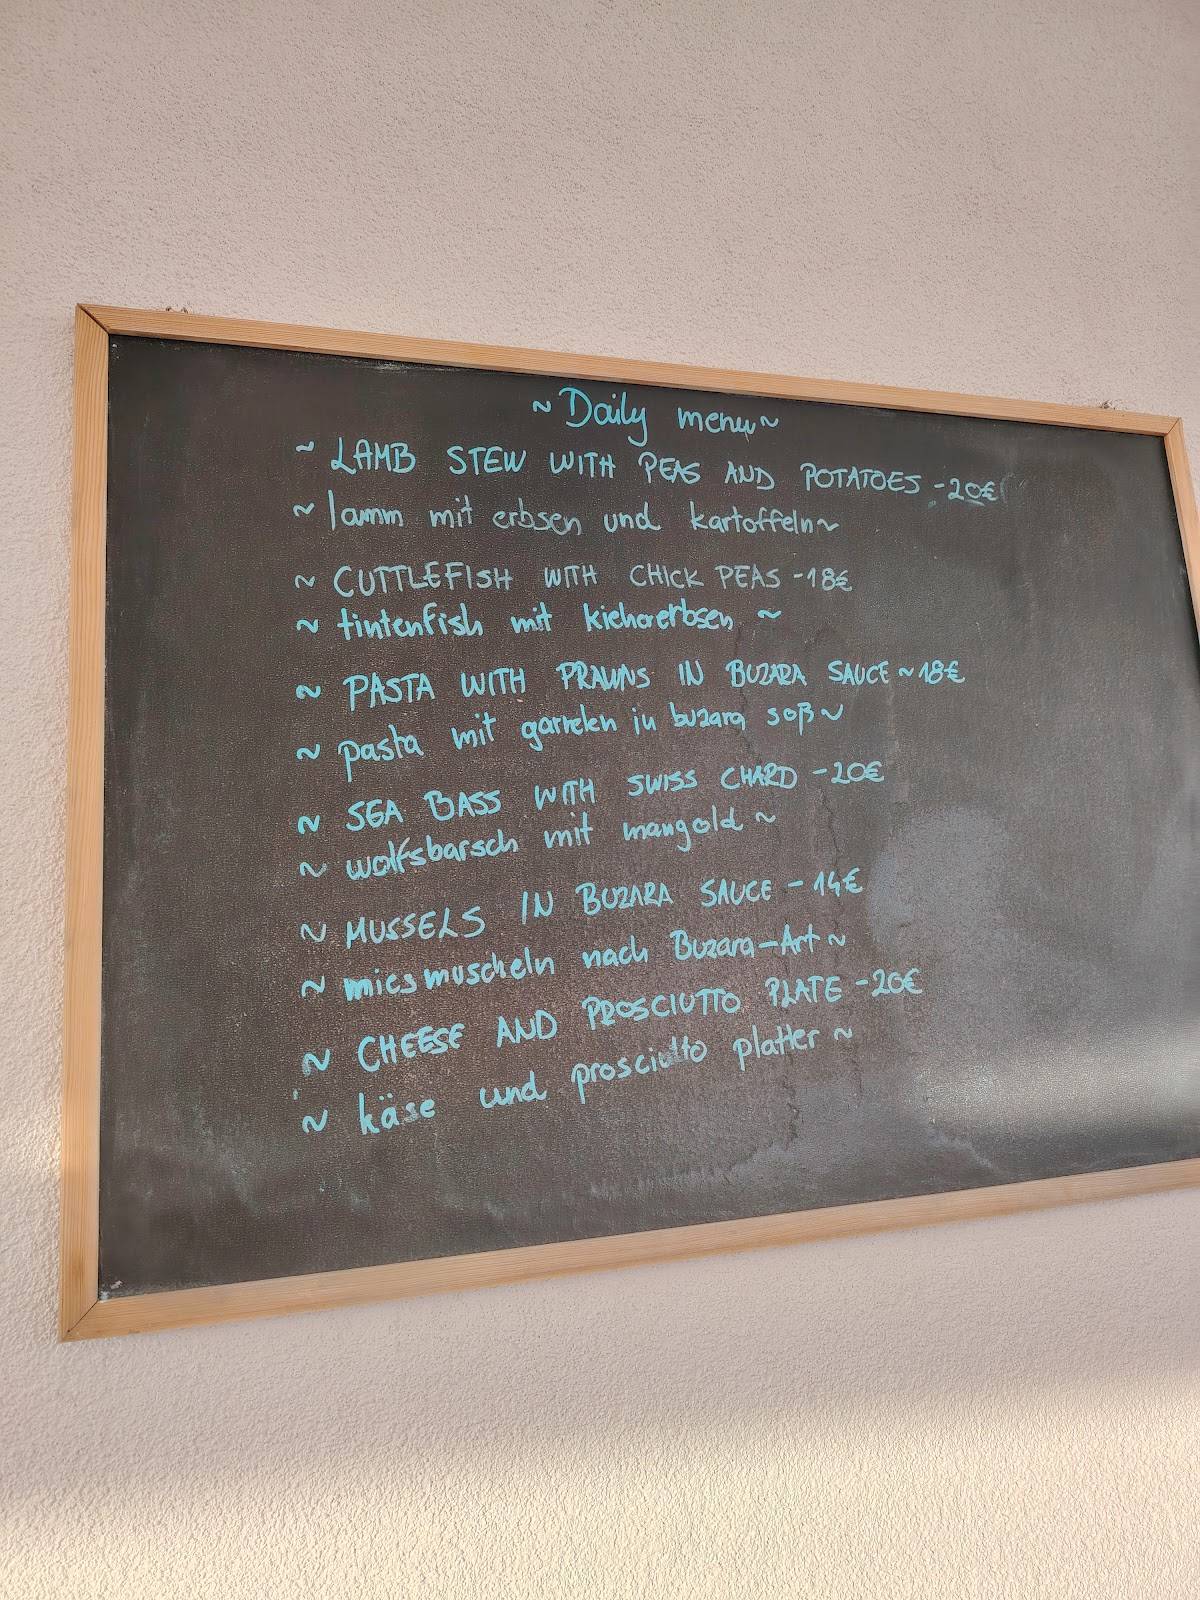 ~ Daily menu ~
~ LAMB STEW WITH PEAS AND POTATOES - 20€
~ lamm mit erbsen und kartoffeln ~
~ CUTTLEFISH WITH CHICK PEAS - 18€
~ tintenfish mit kichererbsen ~
~ PASTA WITH PRAWNS IN BUZARA SAUCE ~ 18€
~ pasta mit garnelen in buzara soß ~
~ SEA BASS WITH SWISS CHARD - 20€
~ wolfsbarsch mit mangold ~
~ MUSSELS IN BUZARA SAUCE - 14€
~ miesmuscheln nach Buzara-Art ~
~ CHEESE AND PROSCIUTTO PLATE - 20€
~ käse und prosciutto platter ~